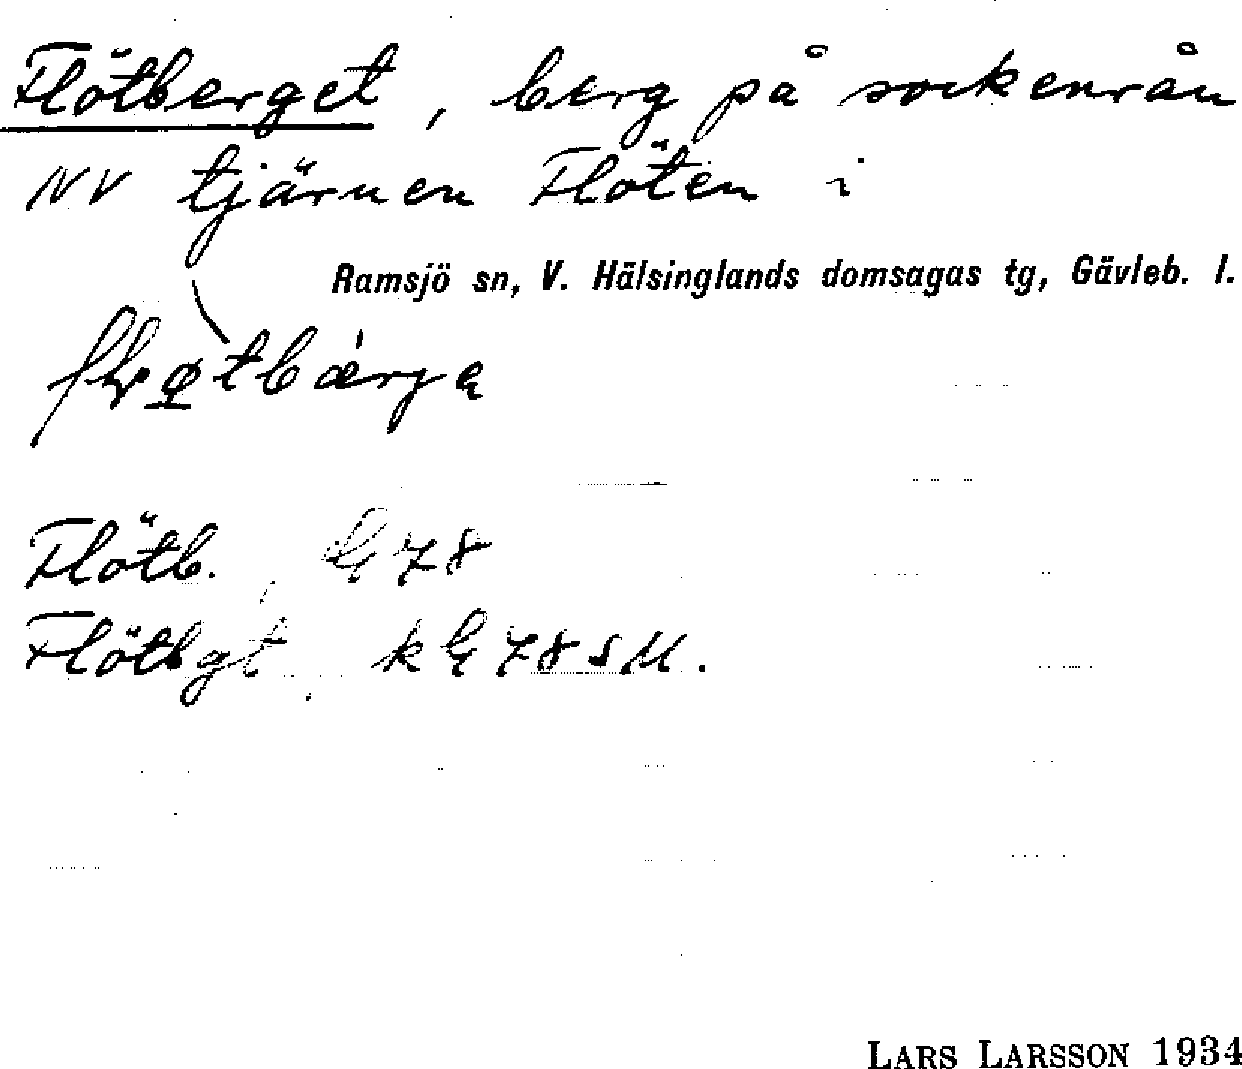 Flötberget, berg på sockenrån
NV tjärnen Flöten i
Ramsjö sn, V. Hälsinglands domsagas tg, Gävleb. l.
Flötb. G 78
Flötbgt, k G 78 s M.
LARS LARSSON 1934